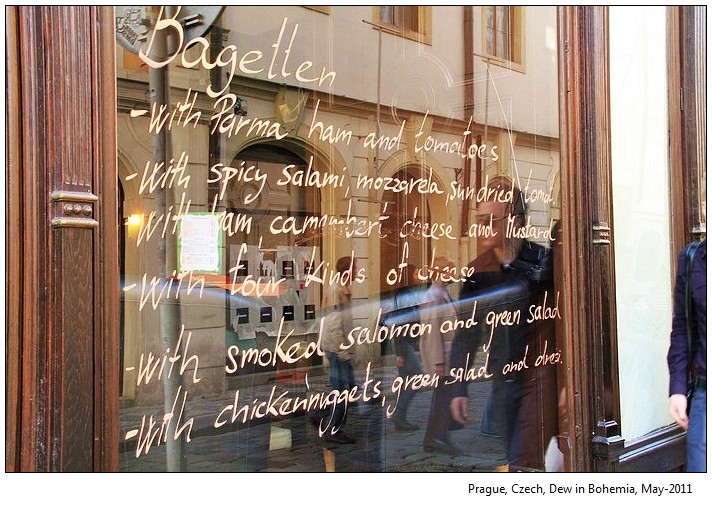 Bagetten
-with Parma ham and tomatoes
-with spicy salami, mozzarela, sun dried tomat
-with ham camembert cheese and Mustard
-with four kinds of cheese
-with smoked salomon and green salad
-with chicken nuggets, green salad and dresi.
Prague, Czech, Dew in Bohemia, May-2011